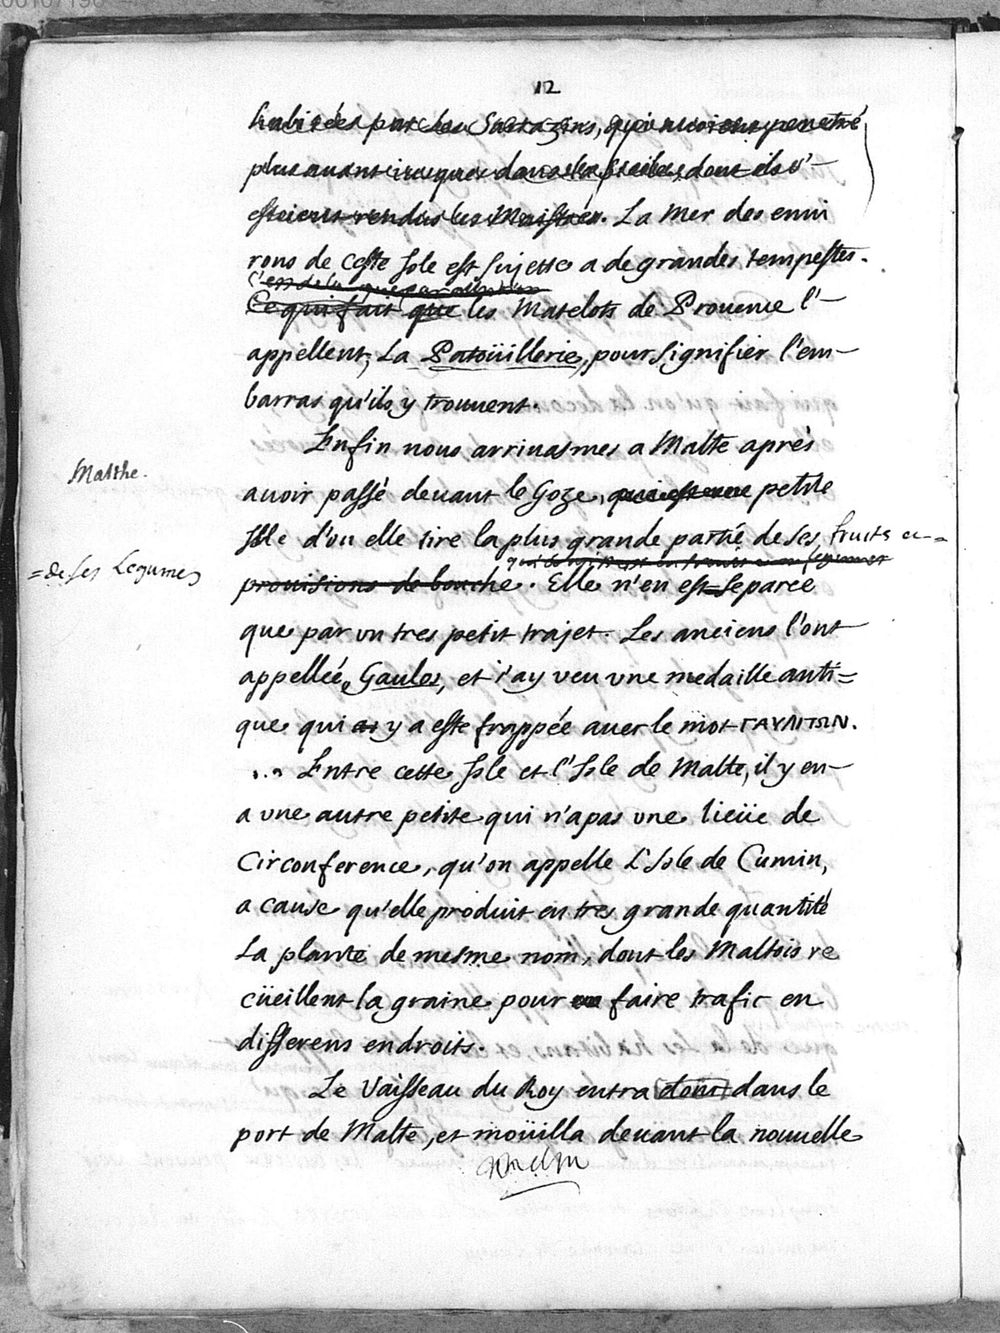 12
habitées par les Sarrazins, qui avoient penetré
plus avant jusques dans la Sicile, dont ils s'-
estoient rendus les Maistres. La Mer des envi
rons de ceste Isle est sujette a de grandes tempestes.
C'est de la que par derision
Ce qui fait que les Matelots de Prouence l'-
appellent, La Patoüillerie, pour signifier l'em-
barras qu'ils y trouuent
Enfin nous arriuasmes a Malte aprés
Malthe.
auoir passé deuant le Goze, qui est une petite
Isle d'ou elle tire la plus grande partie de ses fruits et =
= de ses Legumes
prouisions de bouche. Elle n'en est separée
que par vn tres petit trajet. Les anciens l'ont
appellée Gaulos, et j'ay veu vne medaille anti=
que qui y a este frappée auec le mot ΓΑΥΛΙΤΩΝ.
Entre cette Isle et l'Isle de Malte, il y en-
a vne autre petite qui n'a pas vne lieüe de
Circonference, qu'on appelle L'Isle de Cumin,
a cause qu'elle produit en tres grande quantité
La plante de mesme nom, dont les Maltois re
cüeillent la graine pour en faire trafic en
differens endroits.
Le Vaisseau du Roy entra donc dans le
port de Malte, et moüilla deuant la nouuelle